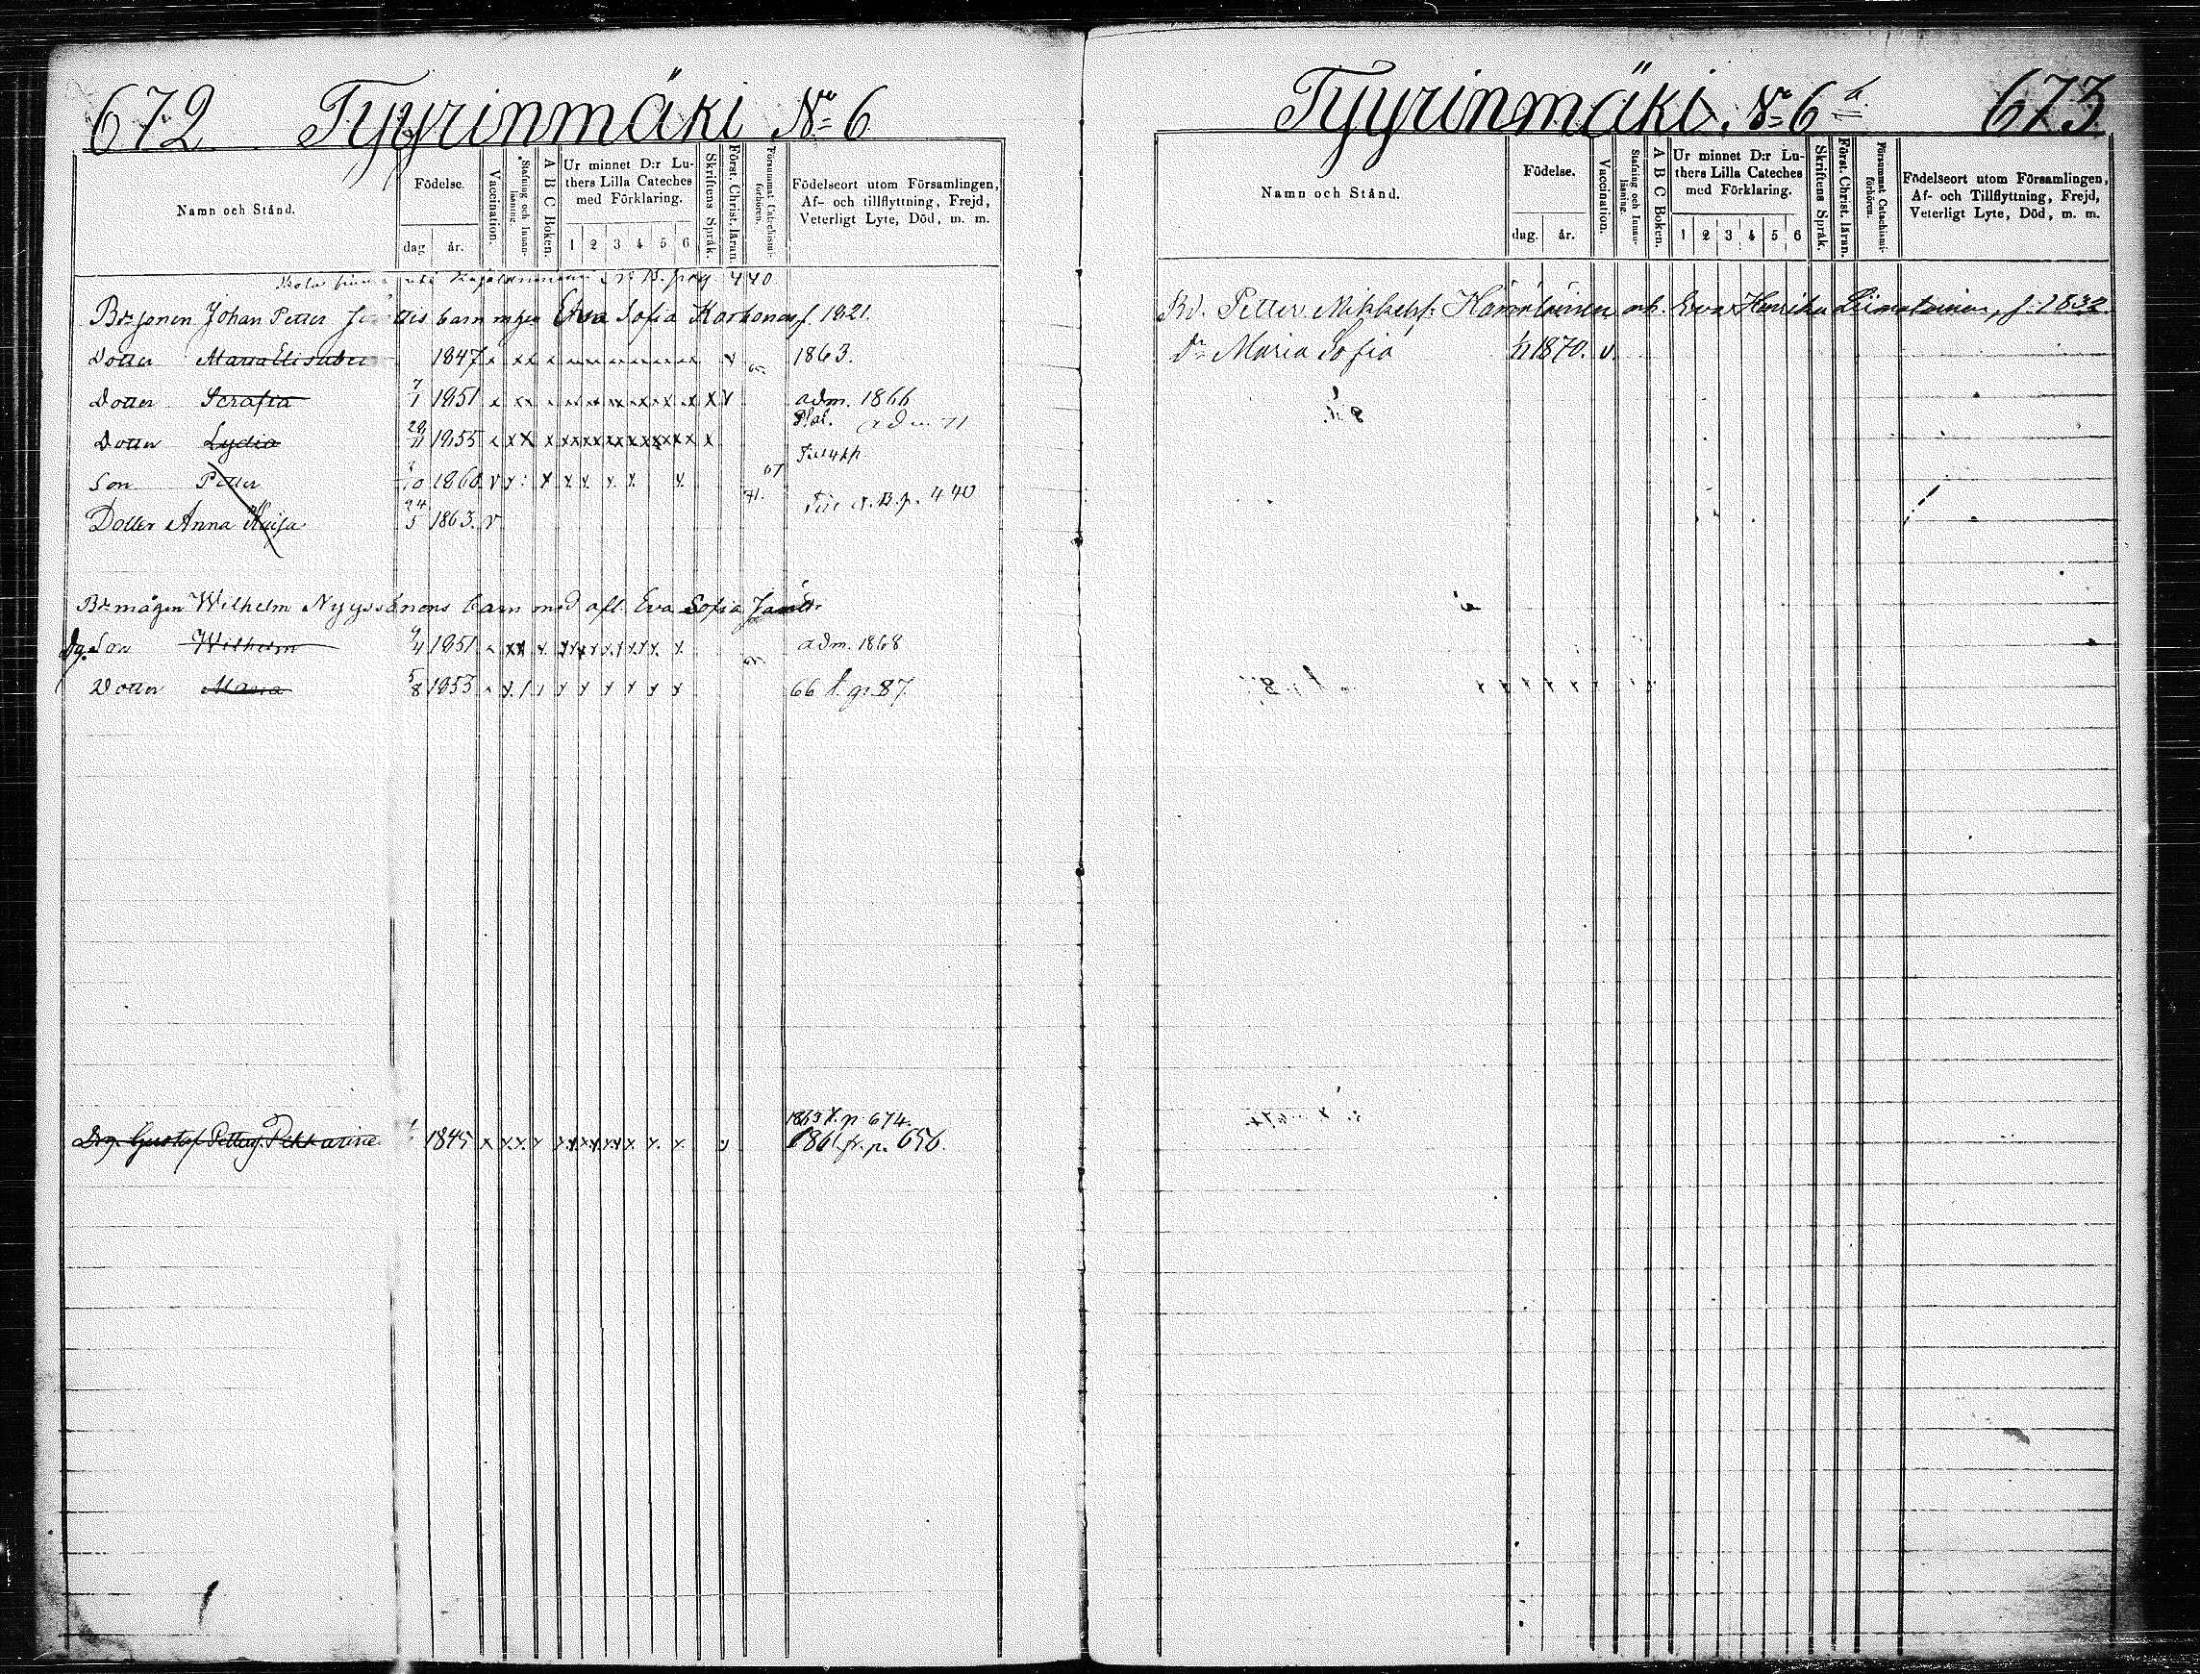 672 Tyyrinmäki No 6
Namn och Stånd.
Födelse.
dag år.
Vaccination.
Stafning och Innan-läsning.
A B C Boken.
Ur minnet D:r Lu-
thers Lilla Cateches
med Förklaring.
1 2 3 4 5 6
Skriftens Språk.
Först. Christ. läran.
Försummat Catechismi-förhören.
Födelseort utom Församlingen,
Af- och tillflyttning, Frejd,
Veterligt Lyte, Död, m. m.
pag 440
Johan Petter barn m hu Eva Sofia Korhonen f. 1821.
Dotter Maria Elisabet 1847 x xx x v 65. 1863.
Dotter Serafia 7/1 1851 x xx x x v adm. 1866
Dotter Lydia 29/11 1855 x xx x x adm 71
Son Petter 10 1860. v x x x x x x x 67
Dotter Anna Kaisa 24/5 1863. v 71. B. p. 440
Br mågen Wilhelm Nyyssönens barn med afl. Eva Sofia
Dg. Son Wilhelm 9/4 1851 x xx x adm. 1868
Dotter Maria 5/8 1853 x x x x x x x x 66 t. p. 87.
1863 t. p. 674.
Drg. Gustaf Petterss. Pekkarine 1845 x x x x v 1861 fr. p. 656.
Tyyrinmäki. No 6 b. 673
Namn och Stånd.
Födelse.
dag. år.
Vaccination.
Stafning och Innan-läsning.
A B C Boken.
Ur minnet D:r Lu-
thers Lilla Cateches
med Förklaring.
1 2 3 4 5 6
Skriftens Språk.
Först. Christ. läran.
Försummat Catechismi-förhören.
Födelseort utom Församlingen,
Af- och Tillflyttning, Frejd,
Veterligt Lyte, Död, m. m.
Petter Mikkelss. Hämäläinen och Eva Henrika Liimatainen, f. 1832.
Dr Maria Sofia 1870. v.